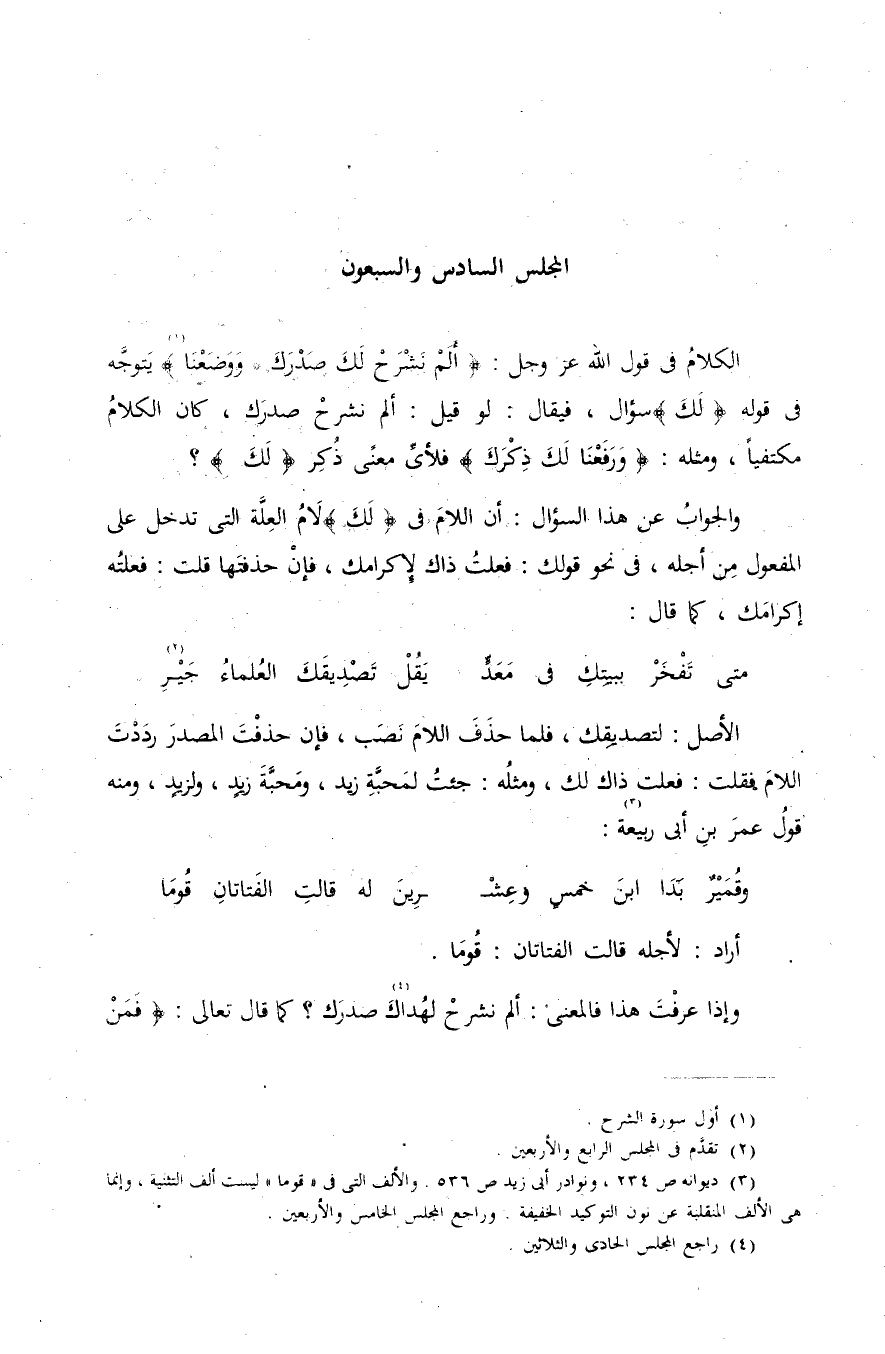 المجلس السادس والسبعون
الكلامُ فى قول الله عز وجل : ﴿ أَلَمْ نَشْرَحْ لَكَ صَدْرَكَ * وَوَضَعْنَا ﴾ (١) يَتوجَّه
فى قوله ﴿ لَكَ ﴾ سؤال ، فيقال : لو قيل : ألم نشرحْ صدرَك ، كان الكلامُ
مكتفياً ، ومثله : ﴿ وَرَفَعْنَا لَكَ ذِكْرَكَ ﴾ فلأىِّ معنًى ذُكِر ﴿ لَكَ ﴾ ؟
والجوابُ عن هذا السؤال : أن اللامَ فى ﴿ لَكَ ﴾ لَامُ العِلَّة التى تدخل على
المفعول مِن أجله ، فى نحو قولك : فعلتُ ذاك لإِكرامك ، فإنْ حذفتَها قلت : فعلتُه
إكرامَك ، كما قال :
متى تَفْخَرْ ببيتِكِ فى مَعَدٍّ يَقُلْ تَصْدِيقَكَ العُلماءُ جَيْرِ (٢)
الأصل : لتصديقِك ، فلما حذَفَ اللامَ نَصَب ، فإن حذفْتَ المصدرَ ردَدْتَ
اللامَ فقلت : فعلت ذاك لك ، ومثلُه : جئتُ لمَحبَّةِ زيد ، ومَحبَّةَ زيدٍ ، ولزيدٍ ، ومنه
قولُ عمرَ بنِ أبى ربيعة (٣) :
وقُمَيْرٌ بَدَا ابنَ خمسٍ وعِشْـ ـرِينَ له قالتِ الفَتاتانِ قُومَا
أراد : لأجله قالت الفتاتان : قُومَا .
وإذا عرفْتَ هذا فالمعنى : ألم نشرحْ لهُداكَ (٤) صدرَك ؟ كما قال تعالى : ﴿ فَمَنْ
(١) أول سورة الشرح .
(٢) تقدَّم فى المجلس الرابع والأربعين .
(٣) ديوانه ص ٢٣٤ ، ونوادر أبى زيد ص ٥٣٦ . والألف التى فى « قوما » ليست ألف التثنية ، وإنما
هى الألف المنقلبة عن نون التوكيد الخفيفة . وراجع المجلس الخامس والأربعين .
(٤) راجع المجلس الحادى والثلاثين .